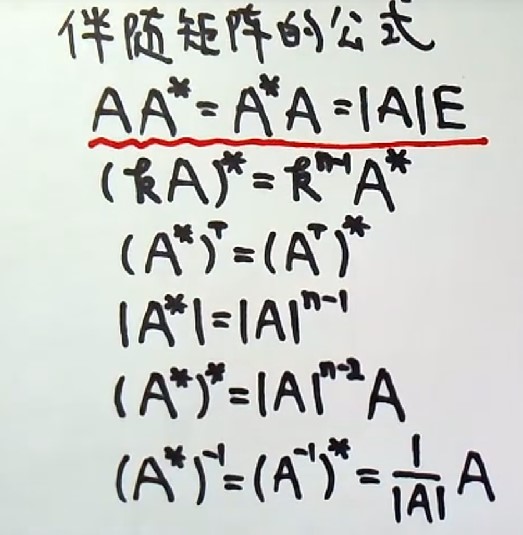 伴随矩阵的公式
AA* = A*A = |A|E
(kA)* = kⁿ⁻¹A*
(A*)ᵀ = (Aᵀ)*
|A*| = |A|ⁿ⁻¹
(A*)* = |A|ⁿ⁻²A
(A*)⁻¹ = (A⁻¹)* = 1/|A| A